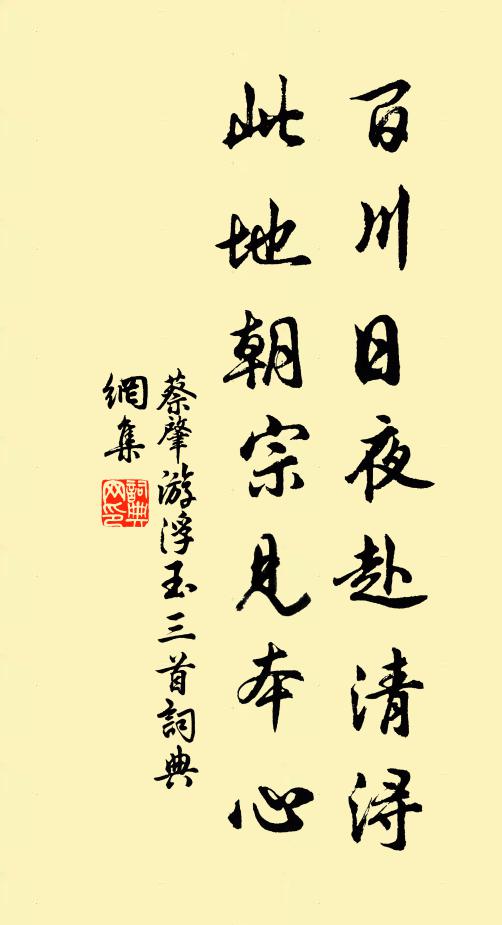 百川日夜赴清浔
此地朝宗見本心
蔡肇游浮玉三首詞典
網集
詞典网印